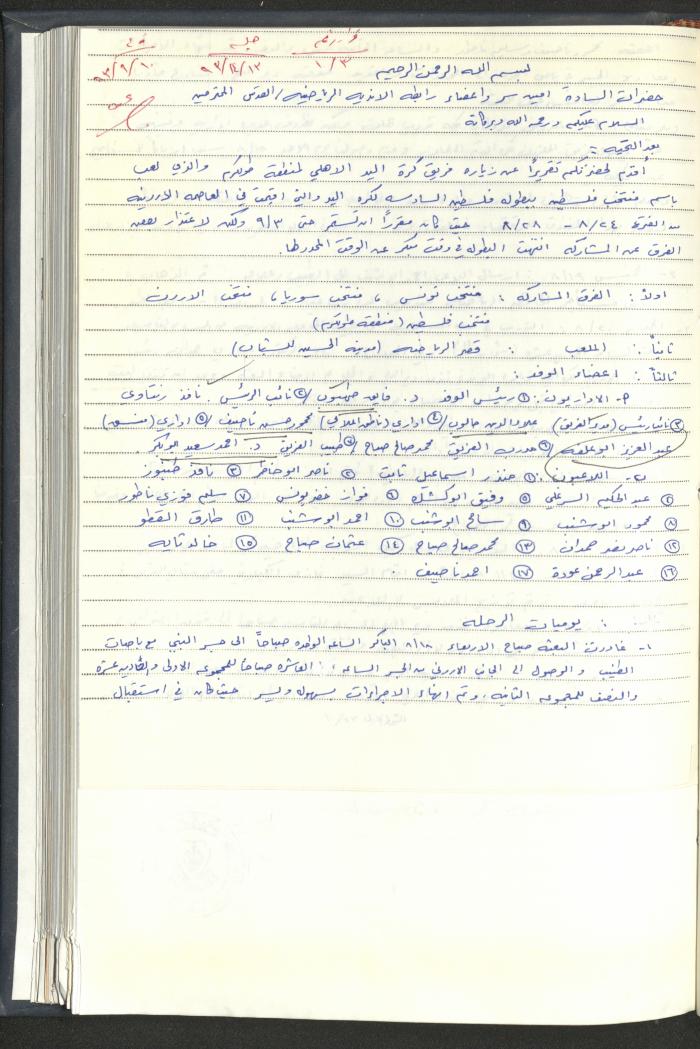 قرار رقم جلسة
١/٣ ٩٣/١٢/١٣ ٩٣/٩/١٠
بسم الله الرحمن الرحيم
حضرات السادة امين سر واعضاء رابطة الاندية الرياضية / القدس المحترمين
السلام عليكم ورحمة الله وبركاته
بعد التحية :
أقدم لحضرتكم تقريراً عن زيارة فريق كرة اليد الاهلي لمنطقة طولكرم والذي لعب
باسم منتخب فلسطين ببطولة فلسطين السادسة لكرة اليد والتي اقيمت في العاصمة الاردنية
من الفترة ٨/٢٤ - ٨/٢٨ حيث كان مقرراً ان تستمر حتى ٩/٣ ولكن لاعتذار بعض
الفرق عن المشاركة انتهت البطولة في وقت مبكر عن الوقت المحدد لها.
اولاً : الفرق المشاركة : منتخب تونس ، منتخب سوريا ، منتخب الاردن
منتخب فلسطين (منطقة طولكرم)
ثانياً : الملعب : قصر الرياضة (مدينة الحسين للشباب)
ثالثاً : اعضاء الوفد :
أ- الاداريون : ١ رئيس الوفد د. / ٢ نائب الرئيس : نافذ
٣ نائب رئيس (مدير الفريق) علاء الدين / ٤ اداري (ناطق اعلامي) محمد حسن ناصيف / ٥ اداري
عبد العزيز / ٦ مدرب الفريق محمد صالح صباح / ٧ طبيب الفريق د. احمد سعيد ابو بكر
ب- اللاعبون : ١ منذر اسماعيل ثابت ٢ ناصر ابو خاطر ٣ نافذ
٤ عبد الحكيم ٥ وفيق ابو كشك ٦ فواز خضر يونس ٧ سليم فوزي ناطور
٨ محمود ابو شنب ٩ سامح ابو شنب ١٠ احمد ابو شنب ١١ طارق القطو
١٢ ناصر نصر حمدان ١٣ محمد صالح صباح ١٤ عثمان صباح ١٥ خالد تايه
١٦ عبد الرحمن عودة ١٧ احمد ناصيف
: يوميات الرحلة
١- غادرت البعثة صباح الاربعاء ٨/١٨ الباكر الساعة الواحدة صباحاً الى جسر اللنبي مع باصات
الطنيب والوصول الى الجانب الاردني من الجسر الساعة : العاشرة صباحاً للمجموعة الاولى والحادية عشرة
والنصف للمجموعة الثانية، وتم انهاء الاجراءات بسهولة ويسر حيث كان في استقبال